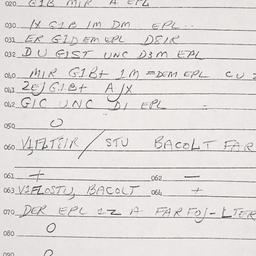 020 G1B MIR A EPL
030 IX G1B IM DM EPL..
031 ER GID EM EPL DEIR
032 DU GIST UNC D3M EPL
040 MIR G1B+ 1M = DEM EPL CU
041 2EJ G1B+ A JX
042 GIC UNC DI EPL :
050 O
060 V1FLTEIR / STU BACOLT FAR
061 + 062 —
063 V1FLOSTU, BACOLT 064 +
070 DER EPL 1Z A FARFOJ-LTER
080 O
090 O